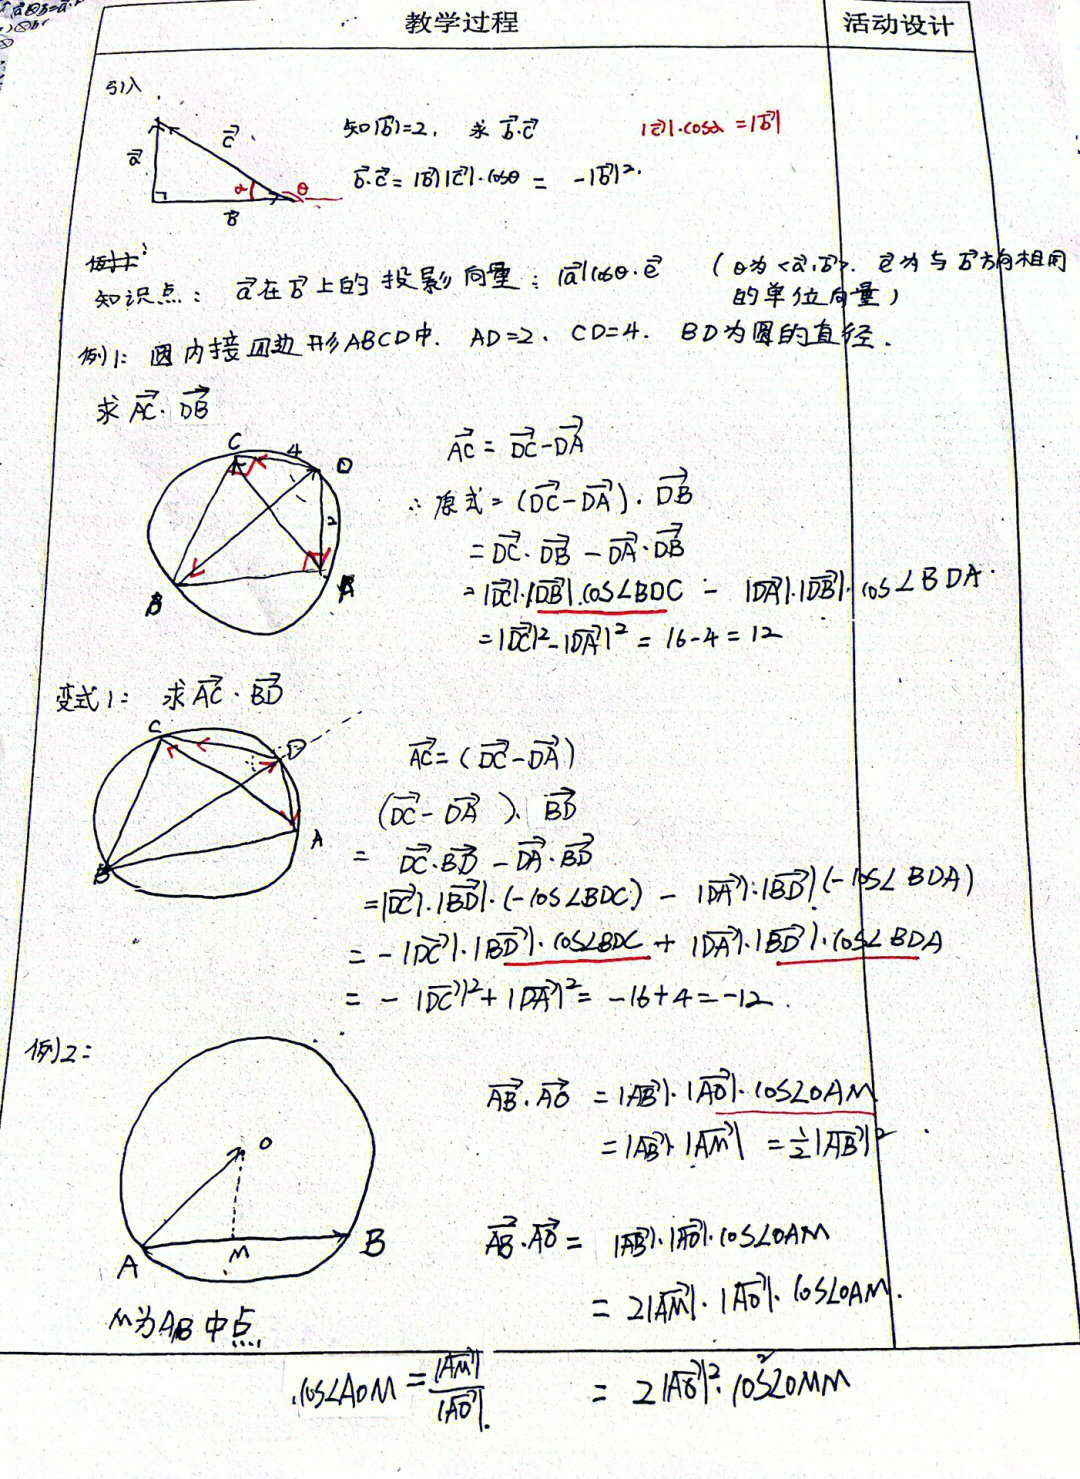 教学过程
活动设计
引入
知|b⃗|=2, 求 b⃗·c⃗
|c⃗|·cosα=|b⃗|
a⃗
c⃗
b⃗
α
θ
b⃗·c⃗=|b⃗||c⃗|·cosθ= -|b⃗|².
知识点: a⃗在b⃗上的投影向量: |a⃗|cosθ·e⃗ (θ为<a⃗,b⃗>. e⃗为与b⃗方向相同
的单位向量)
例1: 圆内接四边形ABCD中. AD=2、CD=4. BD为圆的直径.
求 AC⃗·DB⃗
C
4
D
2
B
A
AC⃗=DC⃗-DA⃗
∴原式=(DC⃗-DA⃗)·DB⃗
=DC⃗·DB⃗-DA⃗·DB⃗
=|DC⃗|·|DB⃗|·cos∠BDC - |DA⃗|·|DB⃗|·cos∠BDA.
=|DC⃗|²-|DA⃗|²=16-4=12
变式1: 求AC⃗·BD⃗
C
D
B
A
AC⃗=(DC⃗-DA⃗)
(DC⃗-DA⃗)·BD⃗
= DC⃗·BD⃗-DA⃗·BD⃗
=|DC⃗|·|BD⃗|·(-cos∠BDC) - |DA⃗|·|BD⃗|(-cos∠BDA)
= -|DC⃗|·|BD⃗|·cos∠BDC+|DA⃗|·|BD⃗|·cos∠BDA
= -|DC⃗|²+|DA⃗|²= -16+4=-12.
例2:
O
A
M
B
M为AB中点.
AB⃗·AO⃗ =|AB⃗|·|AO⃗|·cos∠OAM
=|AB⃗|·|AM⃗| =½|AB⃗|²
AB⃗·AO⃗= |AB⃗|·|AO⃗|·cos∠OAM
= 2|AM⃗|·|AO⃗|·cos∠OAM.
cos∠AOM=|AM⃗|/|AO⃗|.
= 2|AO⃗|²·cos²∠OMM